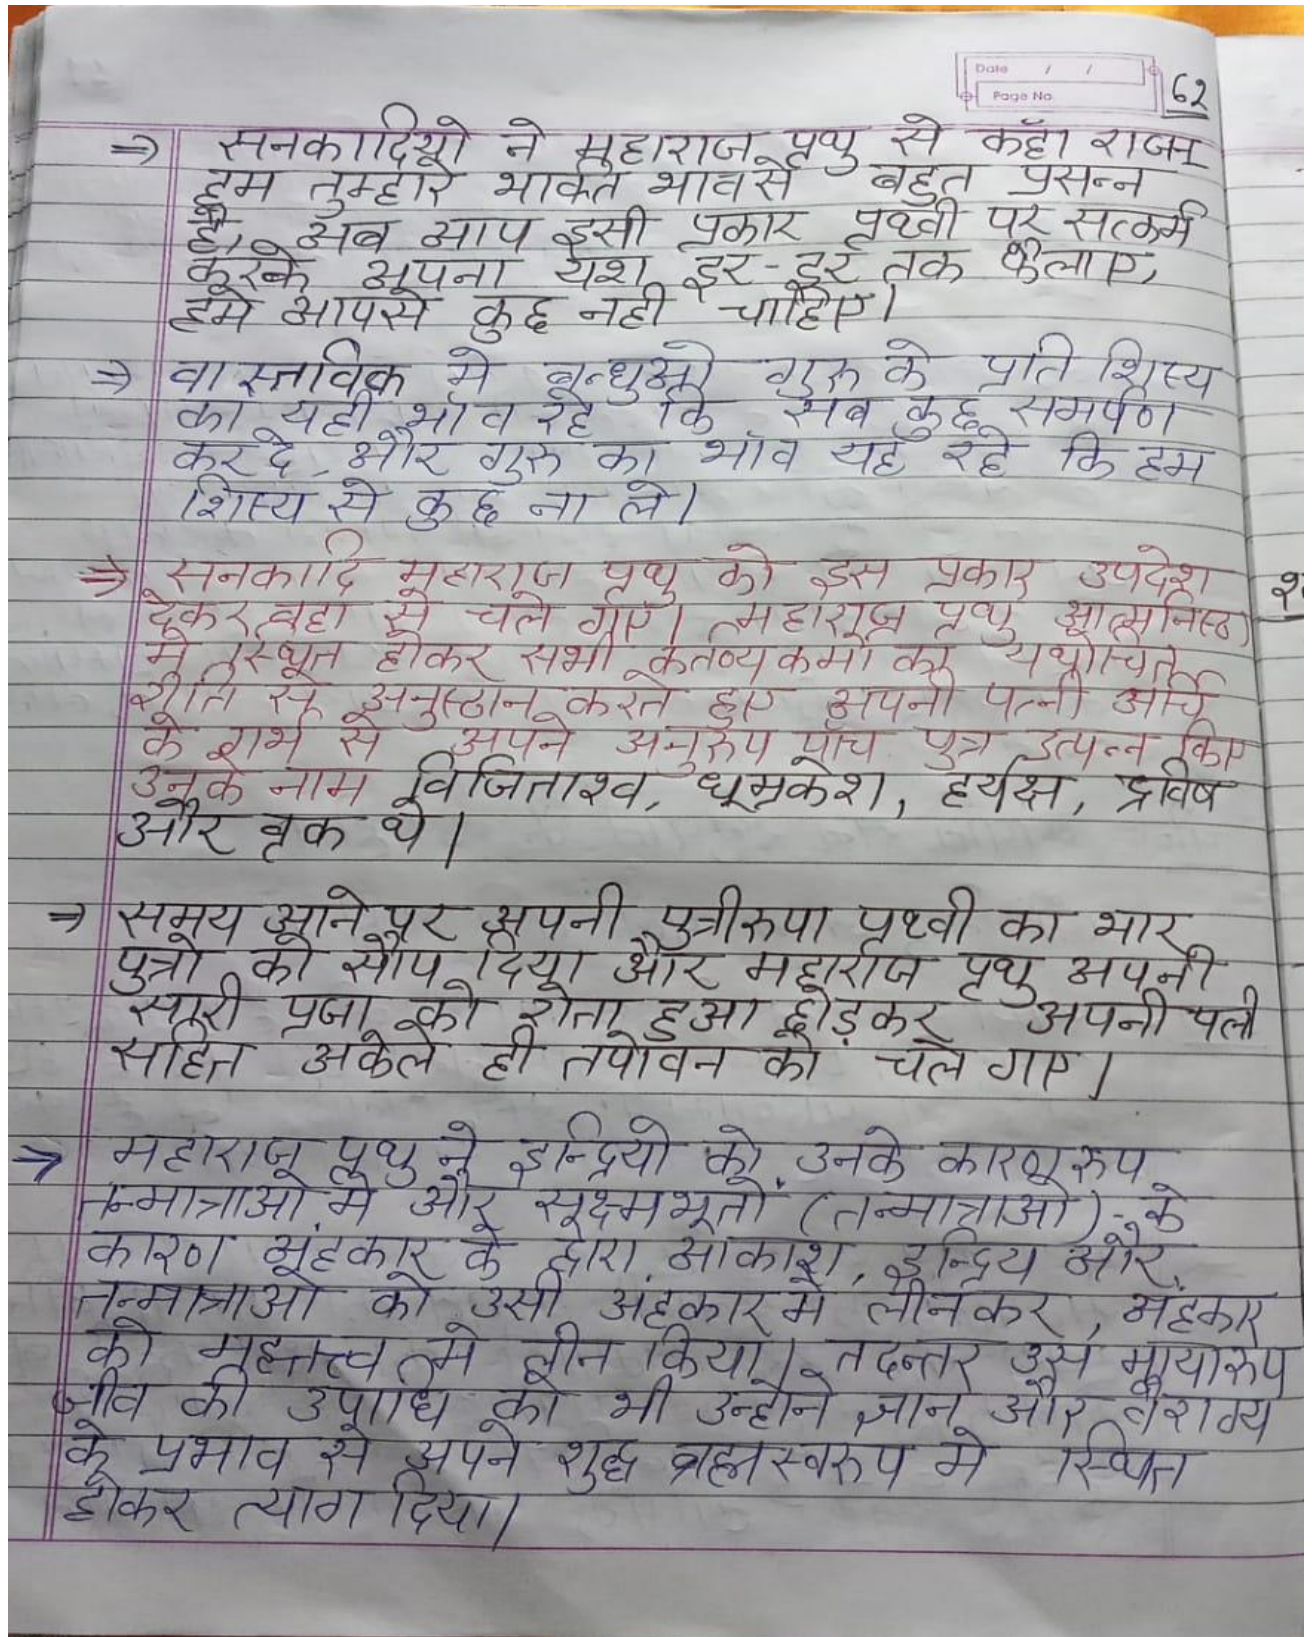 Date / /
Page No. 62
⇒ सनकादियो ने महाराज पृथु से कहाँ राजन
हम तुम्हारे भक्ति भावसे बहुत प्रसन्न
है, अब आप इसी प्रकार पृथ्वी पर सत्कर्म
करके अपना यश दूर-दूर तक फैलाए,
हमे आपसे कुछ नही चाहिए।
⇒ वास्तविक मे बन्धुओ गुरु के प्रति शिष्य
का यही भाँव रहे कि सब कुछ समर्पण
कर दे, और गुरु का भाँव यह रहे कि हम
शिष्य से कुछ ना ले।
⇒ सनकादि महाराज पृथु को इस प्रकार उपदेश
देकर वहा से चले गए। महाराज पृथु आत्मनिष्ठा
मे स्थित होकर सभी कर्तव्यकर्मो का यथोचित
रीति से अनुष्ठान करते हुए अपनी पत्नी अर्चि
के गर्भ से अपने अनुरुप पाँच पुत्र उत्पन्न किए
उनके नाम विजिताश्व, धूम्रकेश, हर्यक्ष, द्रविष
और वृक थे।
⇒ समय आने पर अपनी पुत्रीरुपा पृथ्वी का भार
पुत्रो को सौप दिया और महाराज पृथु अपनी
सारी प्रजा को रोता हुआ छोड़कर अपनी पत्नी
सहित अकेले ही तपोवन को चले गए।
⇒ महाराज पृथु ने इन्द्रियो को उनके कारण रुप
तन्मात्राओ मे और सूक्ष्मभूतो (तन्मात्राओ) के
कारण अंहकार के द्वारा आकाश, इन्द्रिय और
तन्मात्राओ को उसी अहंकार मे लीन कर, अंहकार
को महत्तत्त्व मे लीन किया। तदन्तर उस मायारुप
जीव की उपाधि को भी उन्होने ज्ञान और वैराग्य
के प्रभाव से अपने शुद्ध ब्रह्मस्वरुप मे स्थित
होकर त्याग दिया।